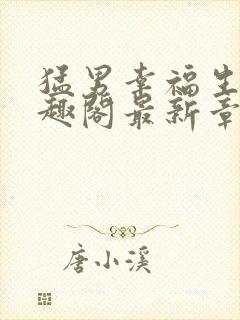 猛男幸福生
趣阁最新章
唐小溪